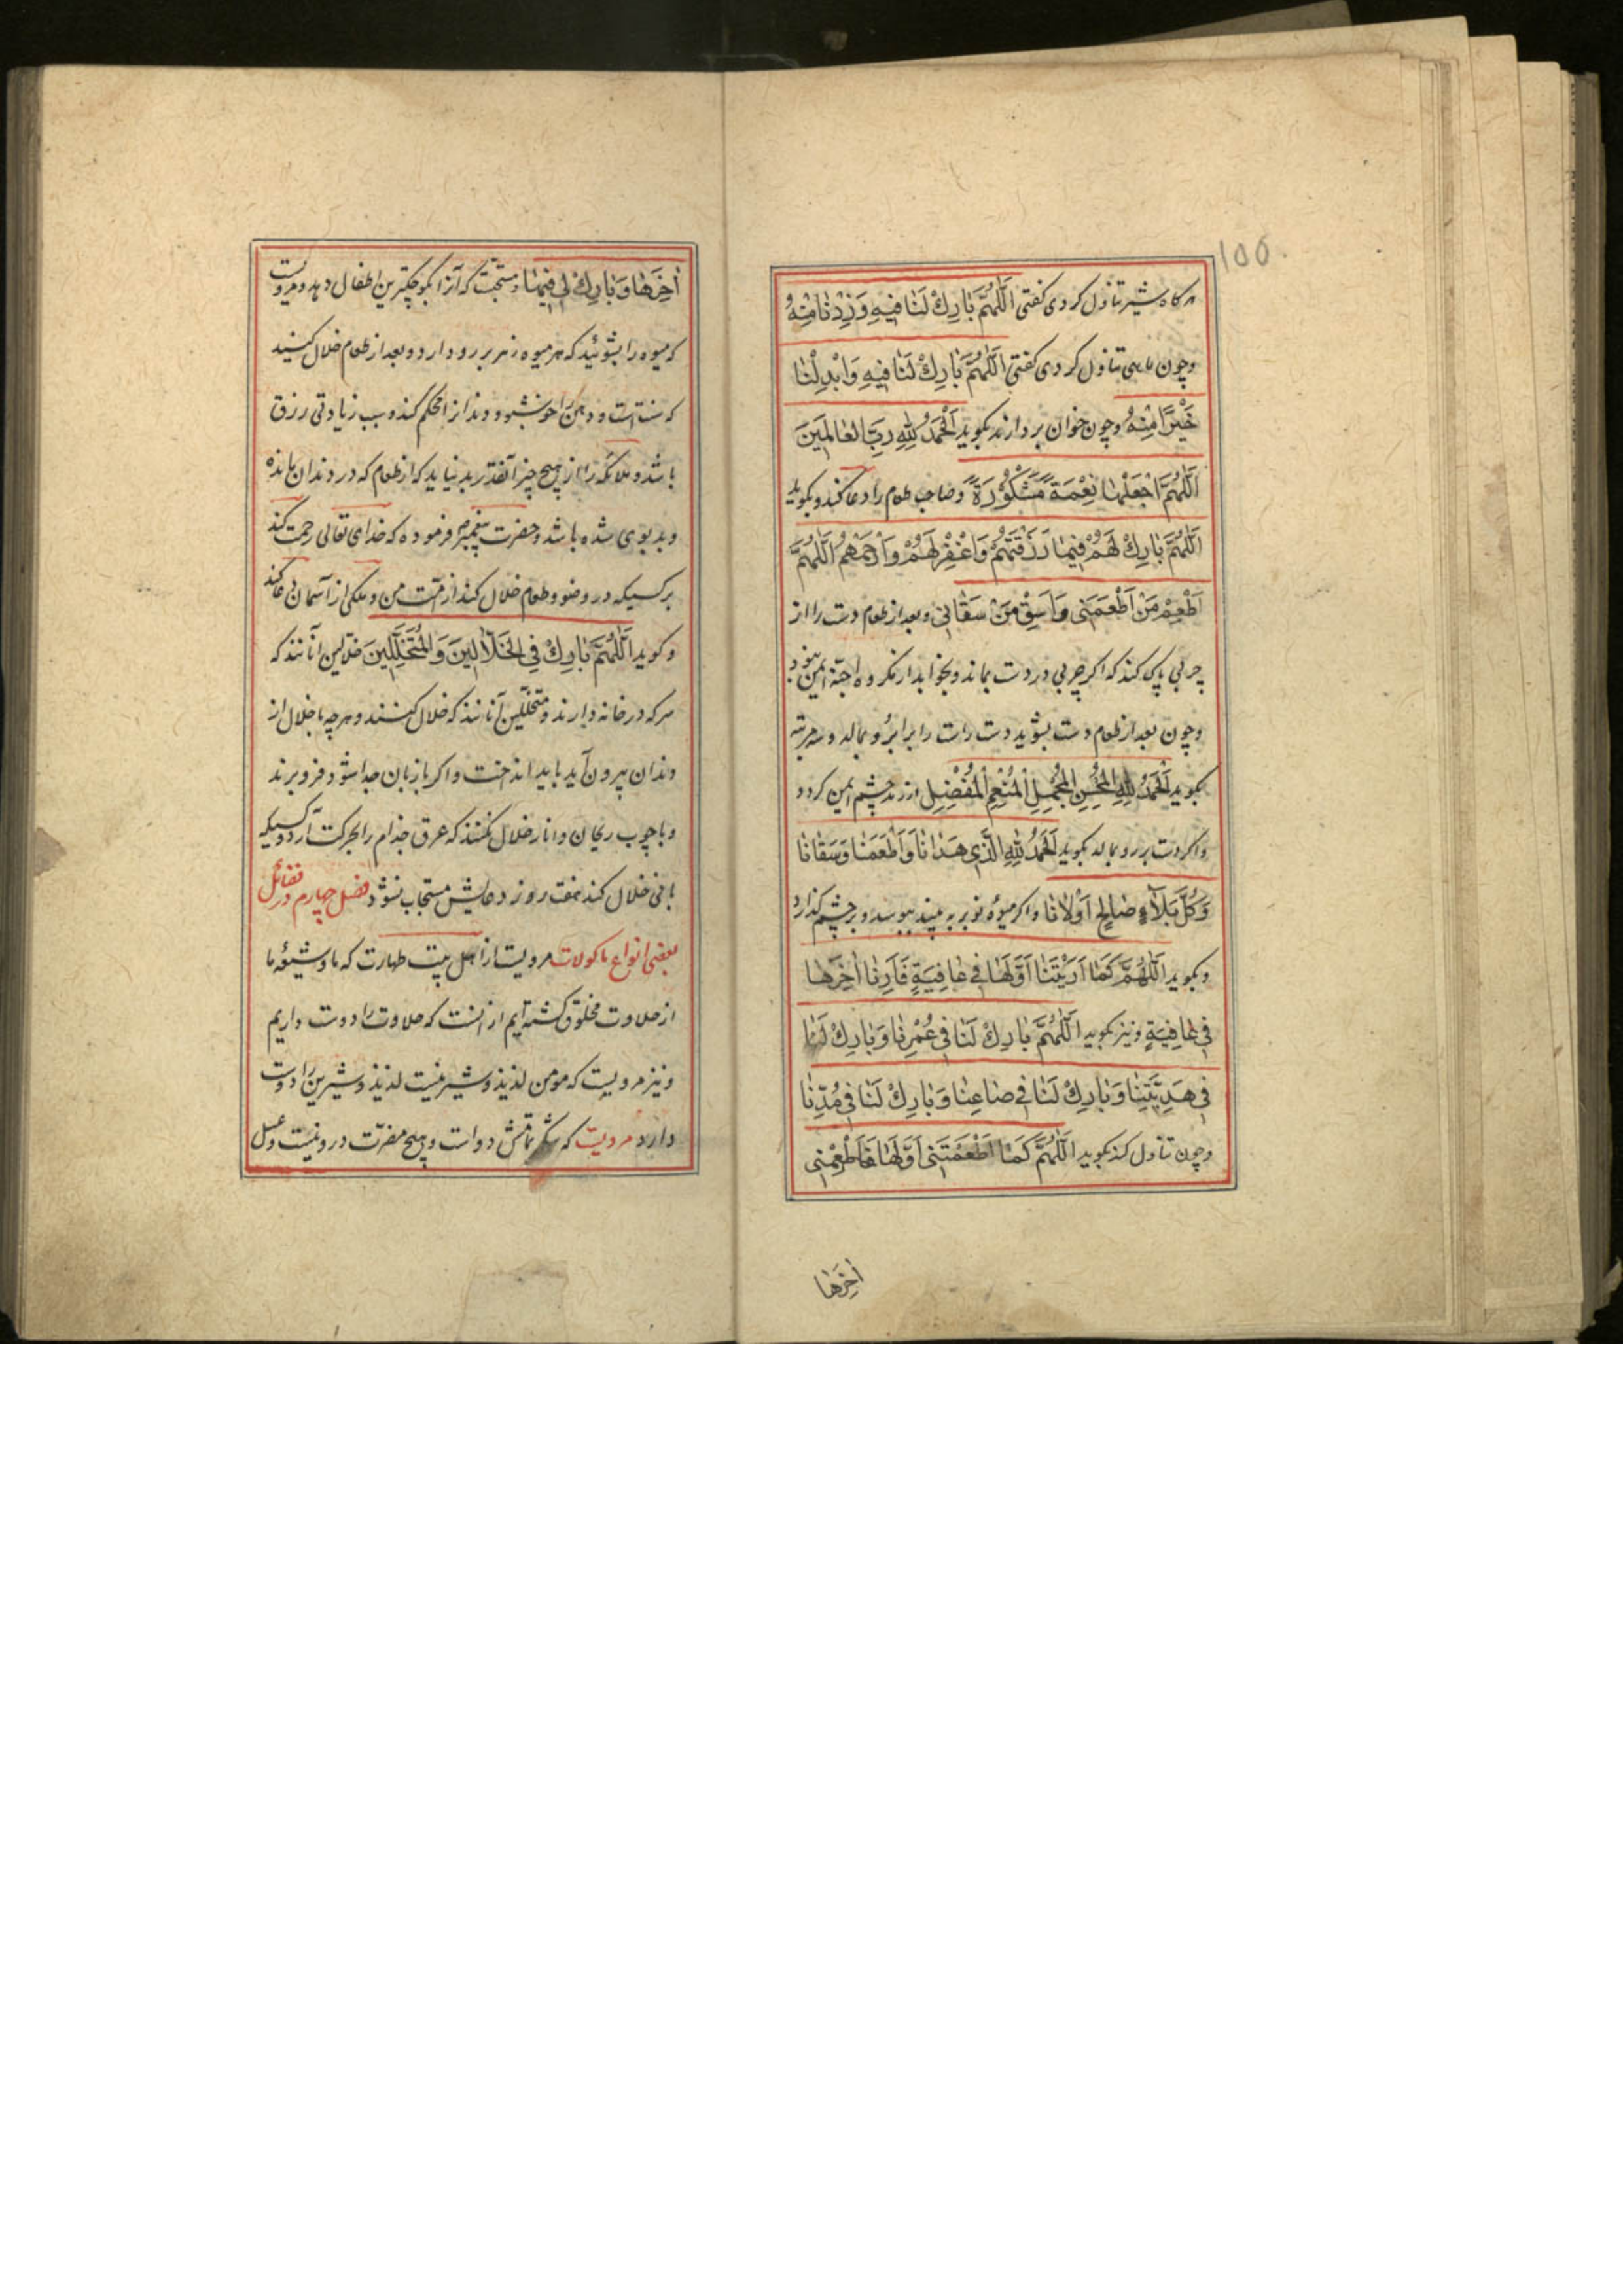 100
هرگاه شیر تناول کردی گفتی اَللّٰهُمَّ بَارِكْ لَنَا فِيهِ وَزِدْنَا مِنْهُ
وچون ماهی تناول کردی گفتی اَللّٰهُمَّ بَارِكْ لَنَا فِيهِ وَابْدِلْنَا
خَيْرًا مِنْهُ وچون خوان بردارند بگوید اَلْحَمْدُ لِلّٰهِ رَبِّ الْعَالَمِينَ
اَللّٰهُمَّ اجْعَلْهَا نِعْمَةً مَشْكُورَةً وصاحب طعام را دعا کند وبگوید
اَللّٰهُمَّ بَارِكْ لَهُمْ فِيمَا رَزَقْتَهُمْ وَاغْفِرْ لَهُمْ وَارْحَمْهُمْ اَللّٰهُمَّ
اَطْعِمْ مَنْ اَطْعَمَنِي وَاسْقِ مَنْ سَقَانِي وبعد از طعام دست را از
چربی پاک کند که اکر چربی در دست بماند وبخوابد از مکروه اجنّه ایمن نبود
وچون بعد از طعام دست بشوید دست راست را بر ابرو بمالد وسه مرتبه
بگوید اَلْحَمْدُ لِلّٰهِ الْمُحْسِنِ الْمُجْمِلِ الْمُنْعِمِ الْمُفْضِلِ از رمد چشم ایمن کردد
واکر دست بر رو بمالد بگوید اَلْحَمْدُ لِلّٰهِ الَّذِي هَدَانَا وَاَطْعَمَنَا وَسَقَانَا
وَكُلَّ بَلَاءٍ صَالِحٍ اَوْلَانَا واکر میوه نوبر به بیند ببوسد وبر چشم گذارد
وبگوید اَللّٰهُمَّ كَمَا اَرَيْتَنَا اَوَّلَهَا فِي عَافِيَةٍ فَاَرِنَا اٰخِرَهَا
فِي عَافِيَةٍ ونیز بگوید اَللّٰهُمَّ بَارِكْ لَنَا فِي عُمْرِنَا وَبَارِكْ لَنَا
فِي هَدِيَّتِنَا وَبَارِكْ لَنَا فِي صَاعِنَا وَبَارِكْ لَنَا فِي مُدِّنَا
وچون تناول کند بگوید اَللّٰهُمَّ كَمَا اَطْعَمْتَنِي اَوَّلَهَا فَاَطْعِمْنِي
اٰخِرَهَا
اٰخِرَهَا وَبَارِكْ لِي فِيهَا ومستحبّست که آنرا بکوچکترین اطفال دهد ومرویست
که میوه را بشوئید که هر میوه زهر بر رو دارد وبعد از طعام خلال کنید
که سنتست ودهن را خوشبو ودندانرا محکم کند وسبب زیادتی رزق
باشد وملائکه را از هیچ چیز آنقدر بد نیاید که از طعام که در دندان مانده
وبدبوی شده باشد وحضرت پیغمبر فرموده که خدای تعالی رحمت کند
بر کسیکه در وضو وطعام خلال کند از امّت من وملکی از آسمان دعا کند
وکوید اَللّٰهُمَّ بَارِكْ فِي الْخَلَّالِينَ وَالْمُتَخَلِّلِينَ خلّالین آنانند که
سرکه در خانه دارند ومتخلّلین آنانند که خلال کنند وهرچه با خلال از
دندان بیرون آید باید انداخت واکر با زبان جدا شود فرو برند
وبا چوب ریحان وانار خلال نکنند که عرق جذام را بحرکت آرد وکسیکه
با نی خلال کند هفت روز دعایش مستجاب نشود فصل چهارم در فضائل
بعضی انواع ماکولات مرویست از اهل بیت طهارت که ما وشیعه ما
از حلاوت مخلوق کشته ایم از انست که حلاوت را دوست داریم
ونیز مرویست که مومن لذیذ وشیرینست لذیذ وشیرین را دوست
دارد مرویست که شکر تمامش دواست وهیچ مضرّت درو نیست وعسل